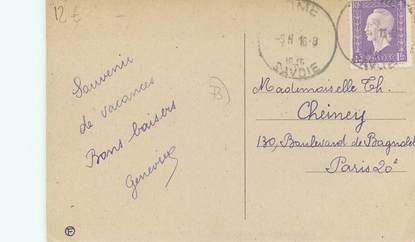 12 €
Souvenir
de vacances
Bons baisers
Geneviève
B
Mademoiselle Th.
Cheiney
130, Boulevard de Bagnolet
Paris 20e
SAVOIE